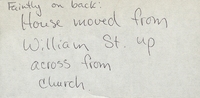 Faintly on back:
House moved from
William St. up
across from
church